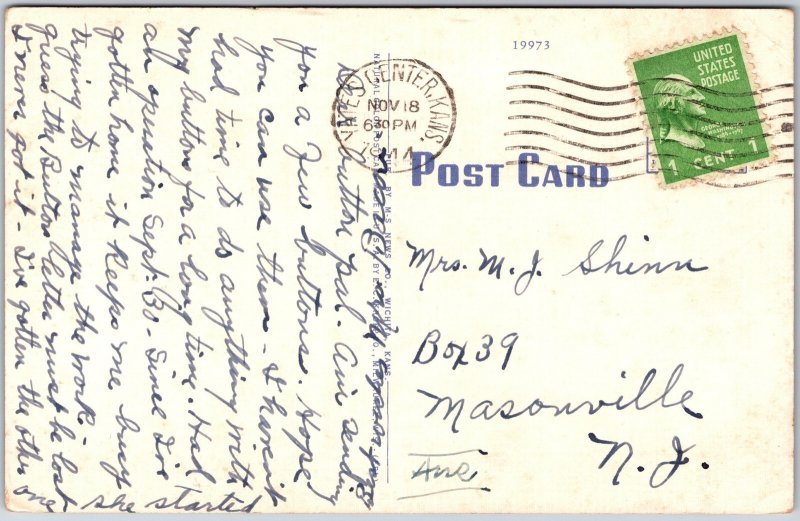 19973
YATES CENTER, KANS.
NOV 18
6 30 PM
UNITED
STATES
POSTAGE
1 CENT 1
POST CARD
Mrs. M. J. Shinn
Box 39
Masonville
N. J.
Ans
Dear Button pal. Am sending
you a few buttons. Hope
you can use them - I haven't
had time to do anything with
my buttons for a long time. Had
an operation Sept. 30 - Since I've
gotten home it keeps me busy
trying to manage the work.
guess the Button letter must be lost
I never got it - I've gotten the other
one she started